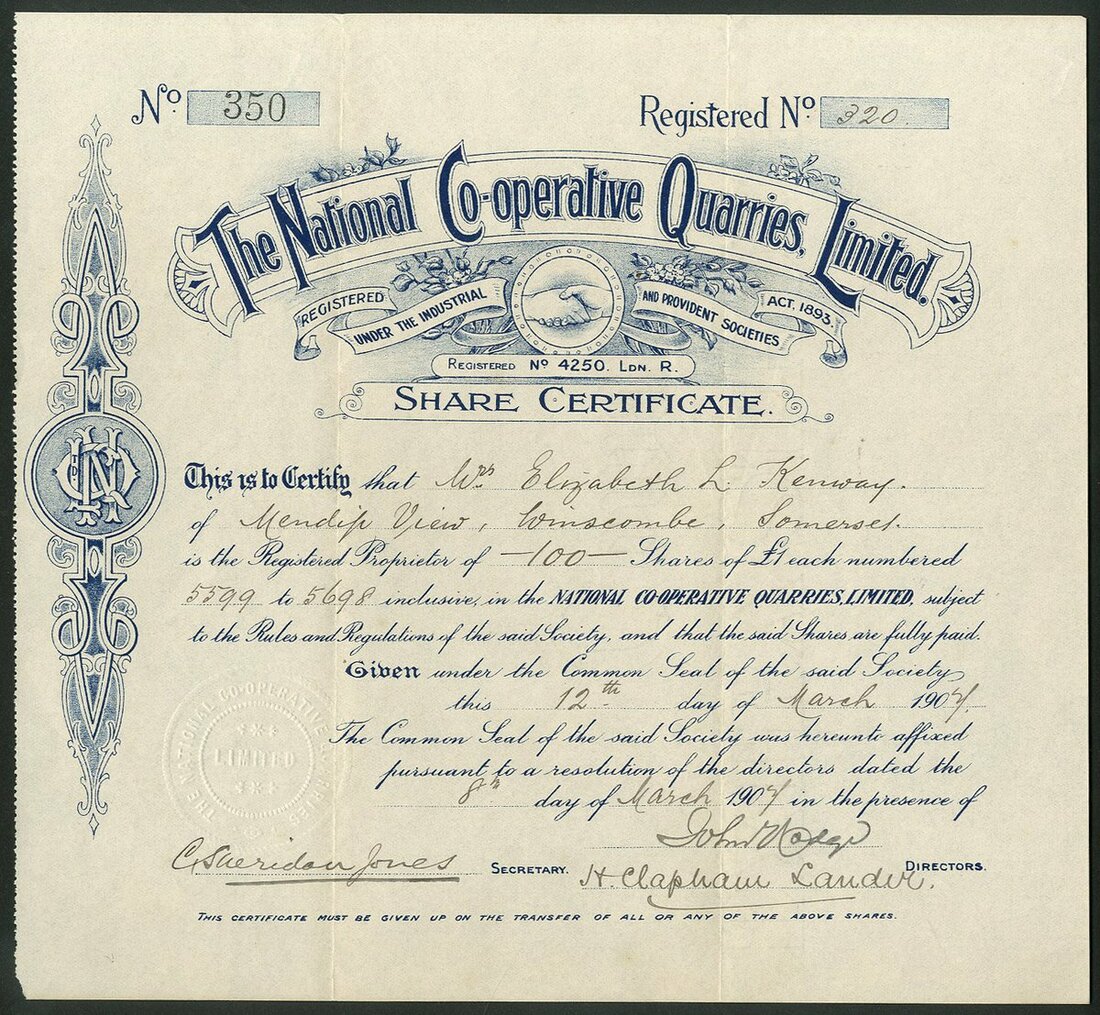 No 350
Registered No 320
The National Co-operative Quarries, Limited.
REGISTERED UNDER THE INDUSTRIAL AND PROVIDENT SOCIETIES ACT. 1893.
REGISTERED No 4250. LDN. R.
SHARE CERTIFICATE.
LTD
This is to Certify that Mrs Elizabeth L. Kenway.
of Mendip View, Winscombe, Somerset.
is the Registered Proprietor of -100- Shares of £1 each numbered
5599 to 5698 inclusive, in the NATIONAL CO-OPERATIVE QUARRIES, LIMITED, subject
to the Rules and Regulations of the said Society, and that the said Shares are fully paid.
Given under the Common Seal of the said Society
this 12th day of March 1904
The Common Seal of the said Society was hereunto affixed
pursuant to a resolution of the directors dated the
8th day of March 1904 in the presence of
THE NATIONAL CO-OPERATIVE
LIMITED
John
C. Sheridan Jones SECRETARY. H. Clapham Lander. DIRECTORS.
THIS CERTIFICATE MUST BE GIVEN UP ON THE TRANSFER OF ALL OR ANY OF THE ABOVE SHARES.